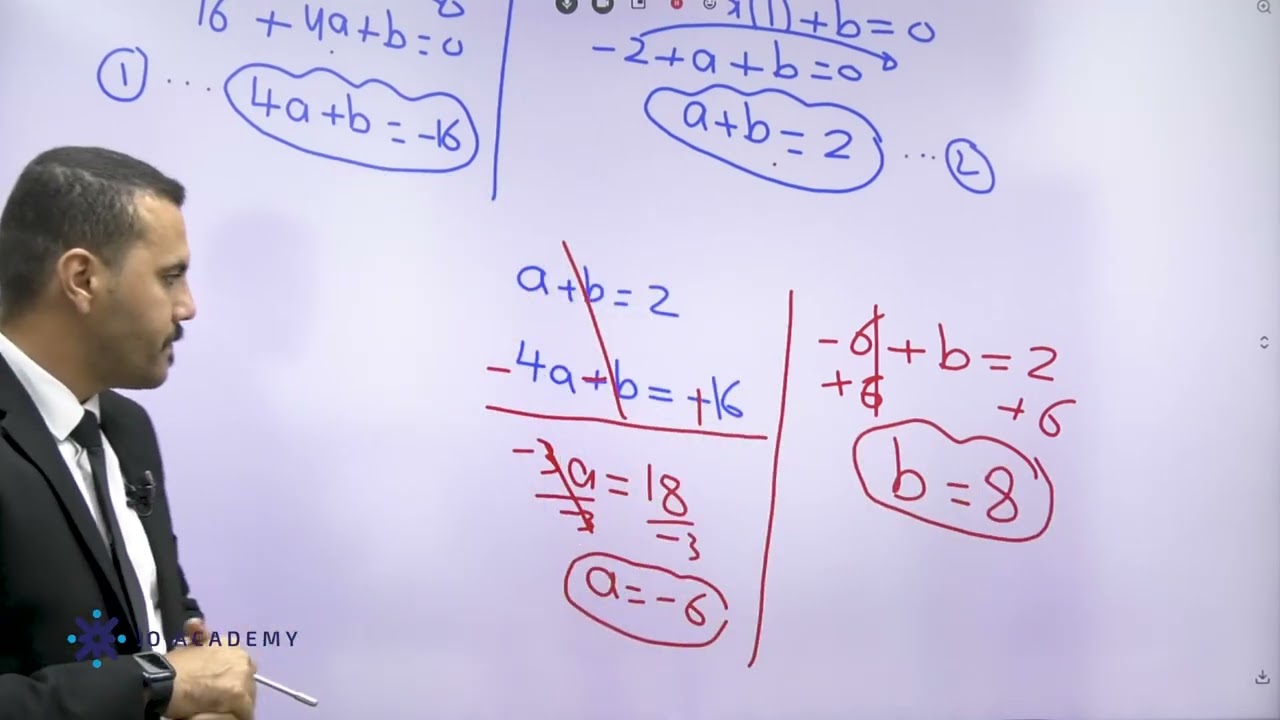 16 + 4a+b=0
① ... 4a+b=-16
+b=0
-2+a+b=0
a+b=2 ... ②
a+b=2
-4a+b=+16
-3a=18
-3 -3
a=-6
-6+b=2
+6 +6
b=8
JO ACADEMY